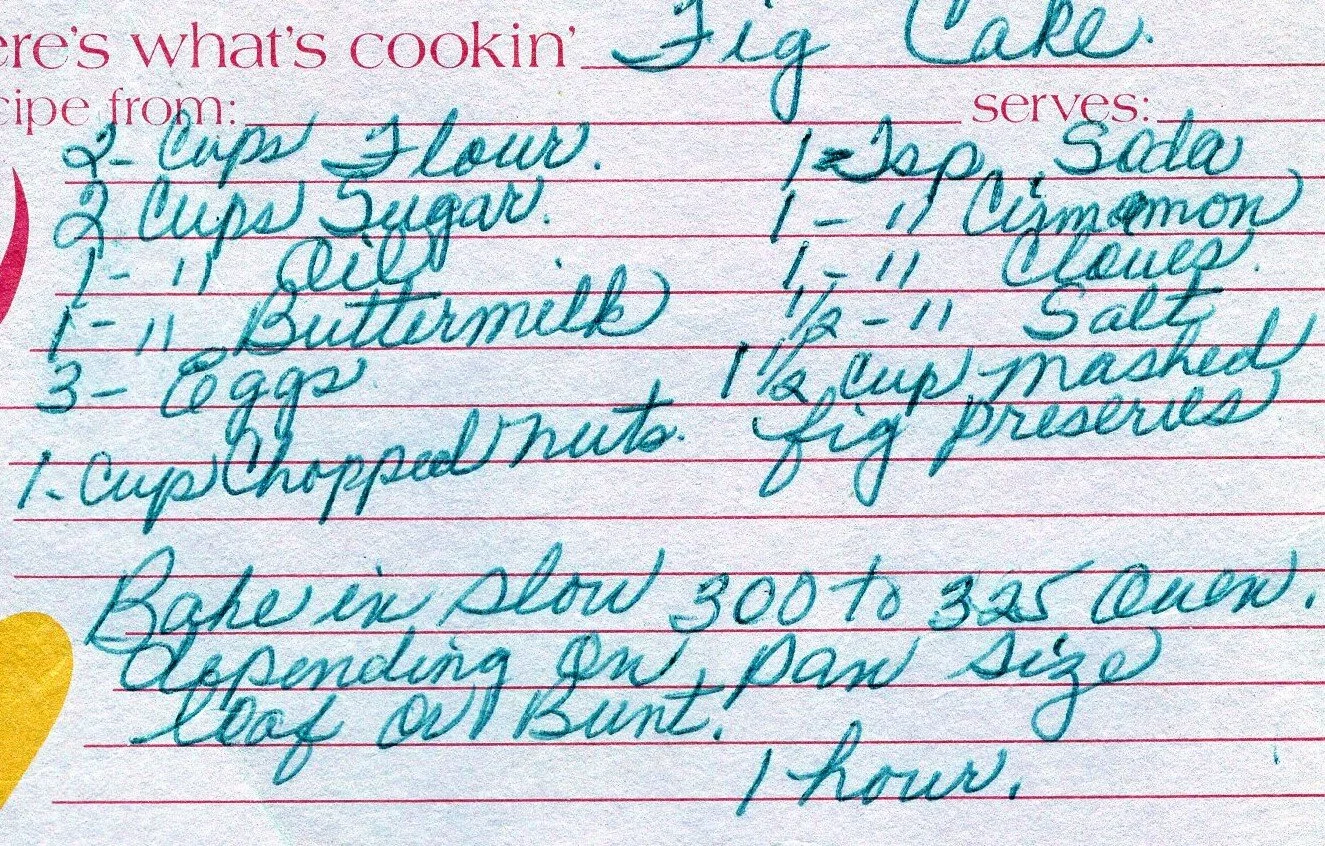 ere's what's cookin' Fig Cake.
cipe from: serves:
2- Cups Flour. 1-Tsp. Soda
2 Cups Sugar. 1 - " Cinnamon
1- " Oil 1 - " Cloves.
1- " Buttermilk 1/2 - " Salt
3- Eggs 1 1/2 Cup mashed
1- Cup Chopped nuts. fig preserves
Bake in slow 300 to 325 Oven.
depending on pan size
loaf or Bunt.
1 hour.